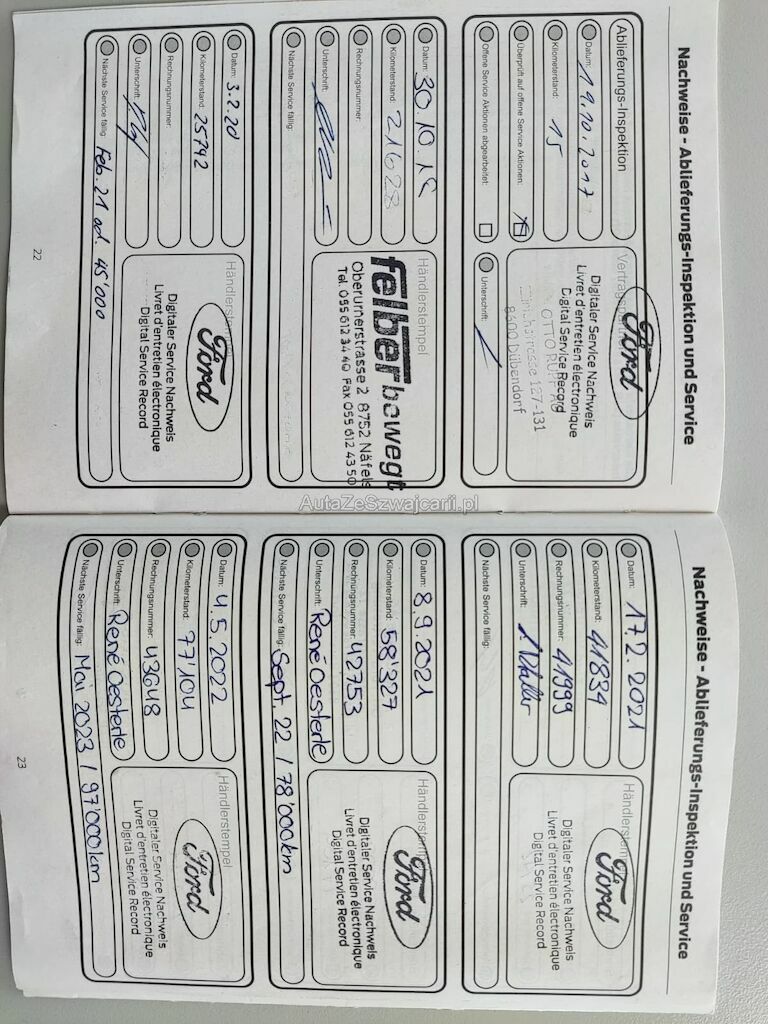 Nachweise - Ablieferungs-Inspektion und Service
Ablieferungs-Inspektion
Datum: 19.10.2017
Kilometerstand: 15
Überprüft auf offene Service Aktionen:
Offene Service Aktionen abgearbeitet:
Ford
Digitaler Service Nachweis
Livret d'entretien électronique
Digital Service Record
OTTO
127-131
8600 Dübendorf
Unterschrift:
Datum: 30.10.18
Kilometerstand: 21628
Rechnungsnummer:
Unterschrift:
Nächste Service fällig:
Händlerstempel
felber bewegt
Oberurnerstrasse 2 8752 Näfels
Tel. 055 612 34 40 Fax 055 612 43 50
Datum: 3.2.20
Kilometerstand: 25792
Rechnungsnummer:
Unterschrift:
Nächste Service fällig: Feb. 21 od. 45'000
Händlerstempel
Ford
Digitaler Service Nachweis
Livret d'entretien électronique
Digital Service Record
22
AutaZeSzwajcarii.pl
Nachweise - Ablieferungs-Inspektion und Service
Datum: 17.2.2021
Kilometerstand: 41834
Rechnungsnummer: 41999
Unterschrift:
Nächste Service fällig:
Händlerstempel
Ford
Digitaler Service Nachweis
Livret d'entretien électronique
Digital Service Record
Datum: 8.9.2021
Kilometerstand: 58'327
Rechnungsnummer: 42753
Unterschrift: René Oesterle
Nächste Service fällig: Sept. 22 / 78'000km
Händlerstempel
Ford
Digitaler Service Nachweis
Livret d'entretien électronique
Digital Service Record
Datum: 4.5.2022
Kilometerstand: 77'104
Rechnungsnummer: 43648
Unterschrift: René Oesterle
Nächste Service fällig: Mai 2023 / 97'000km
Händlerstempel
Ford
Digitaler Service Nachweis
Livret d'entretien électronique
Digital Service Record
23